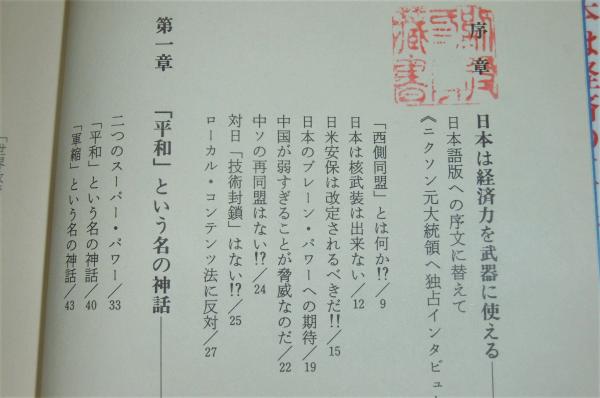 序章　日本は経済力を武器に使える
日本語版への序文に替えて
《ニクソン元大統領へ独占インタビュー
「西側同盟」とは何か!?／9
日本は核武装は出来ない／12
日米安保は改定されるべきだ!!／15
日本のブレーン・パワーへの期待／19
中国が弱すぎることが脅威なのだ／22
中ソの再同盟はない!?／24
対日「技術封鎖」はない!?／25
ローカル・コンテンツ法に反対／27
第一章　「平和」という名の神話
二つのスーパー・パワー／33
「平和」という名の神話／40
「軍縮」という名の神話／43